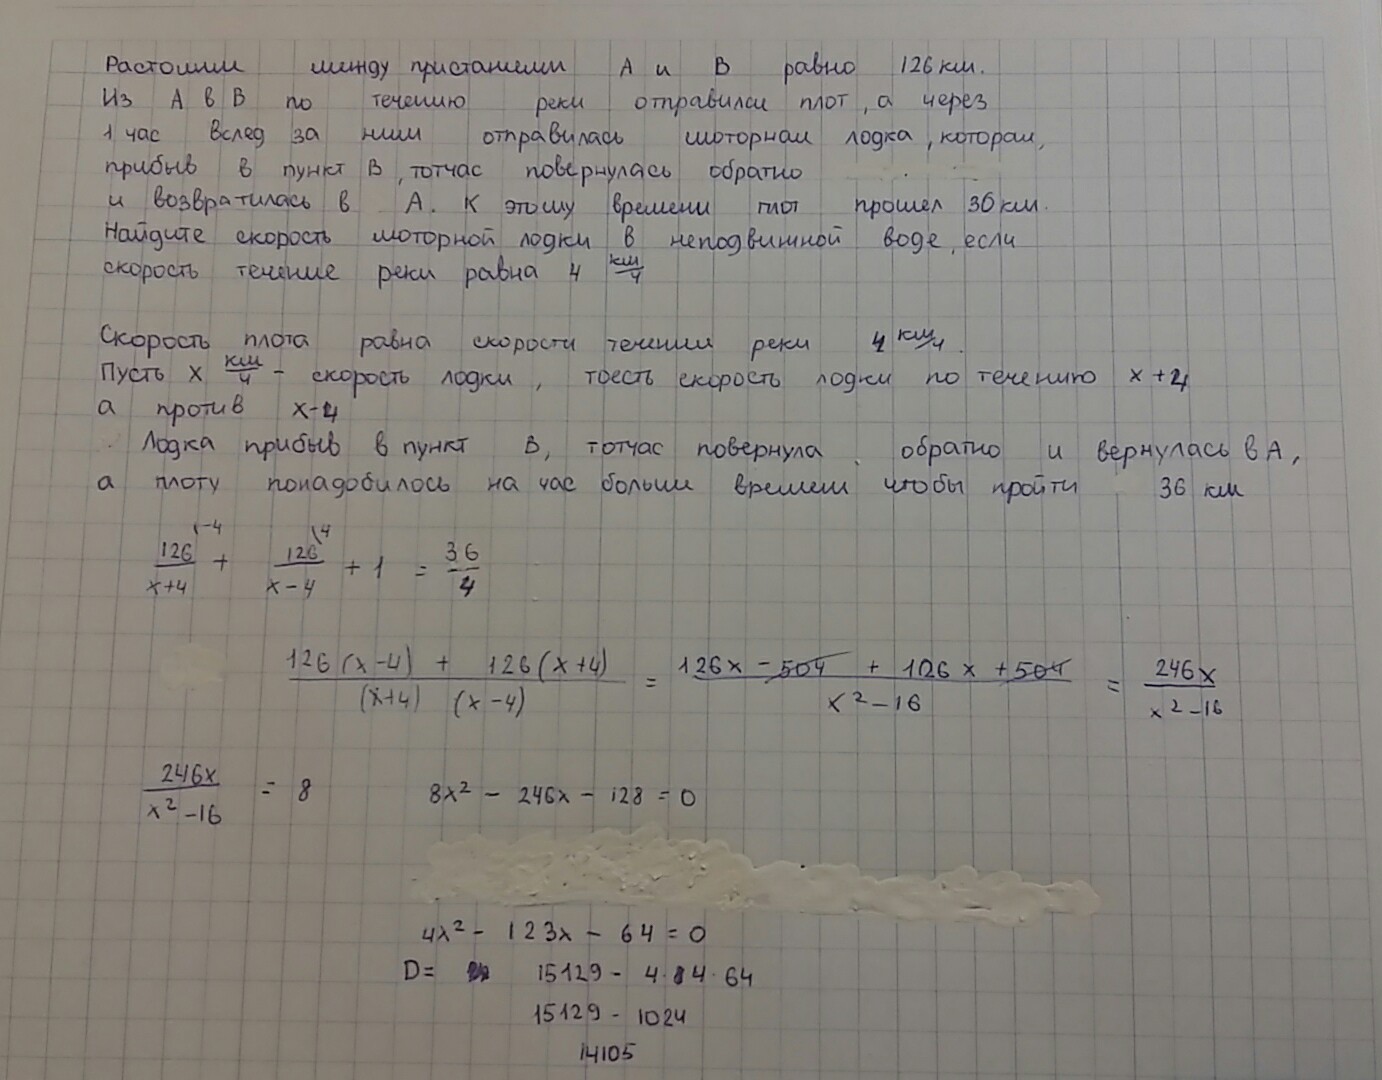 Растоянии между пристанями А и В равно 126 км.
Из А в В по течению реки отправился плот, а через
1 час вслед за ним отправилась моторная лодка, которая,
прибыв в пункт В, тотчас повернулась обратно
и возвратилась в А. К этому времени плот прошел 36 км.
Найдите скорость моторной лодки в неподвижной воде, если
скорость течение реки равна 4 км/ч
Скорость плота равна скорости течения реки 4 км/ч.
Пусть x км/ч - скорость лодки, тоесть скорость лодки по течению x+4
а против x-4
Лодка прибыв в пункт В, тотчас повернула обратно и вернулась в А,
а плоту понадобилось на час больши времени чтобы пройти 36 км
126/(x+4) \-4 + 126/(x-4) \4 + 1 = 36/4
(126(x-4) + 126(x+4))/((x+4)(x-4)) = (126x - 504 + 126x + 504)/(x²-16) = 246x/(x²-16)
246x/(x²-16) = 8 8x² - 246x - 128 = 0
4x² - 123x - 64 = 0
D= 15129 - 4·84·64
15129 - 1024
14105